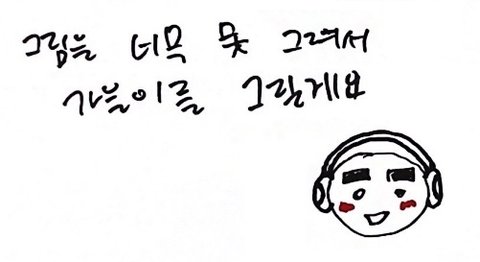 그림을 너무 못 그려서
가을이를 그릴게요